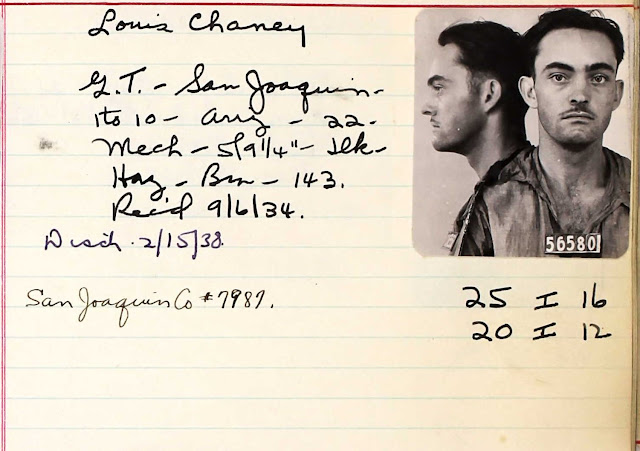 Louis Chaney
G.T. - San Joaquin -
1 to 10 - Ariz - 22 -
Mech - 5/9 1/4" - Dk -
Haz - Brn - 143.
Rec'd 9/6/34.
Disch. 2/15/38.
San Joaquin Co #7987.
56580
25 I 16
20 I 12